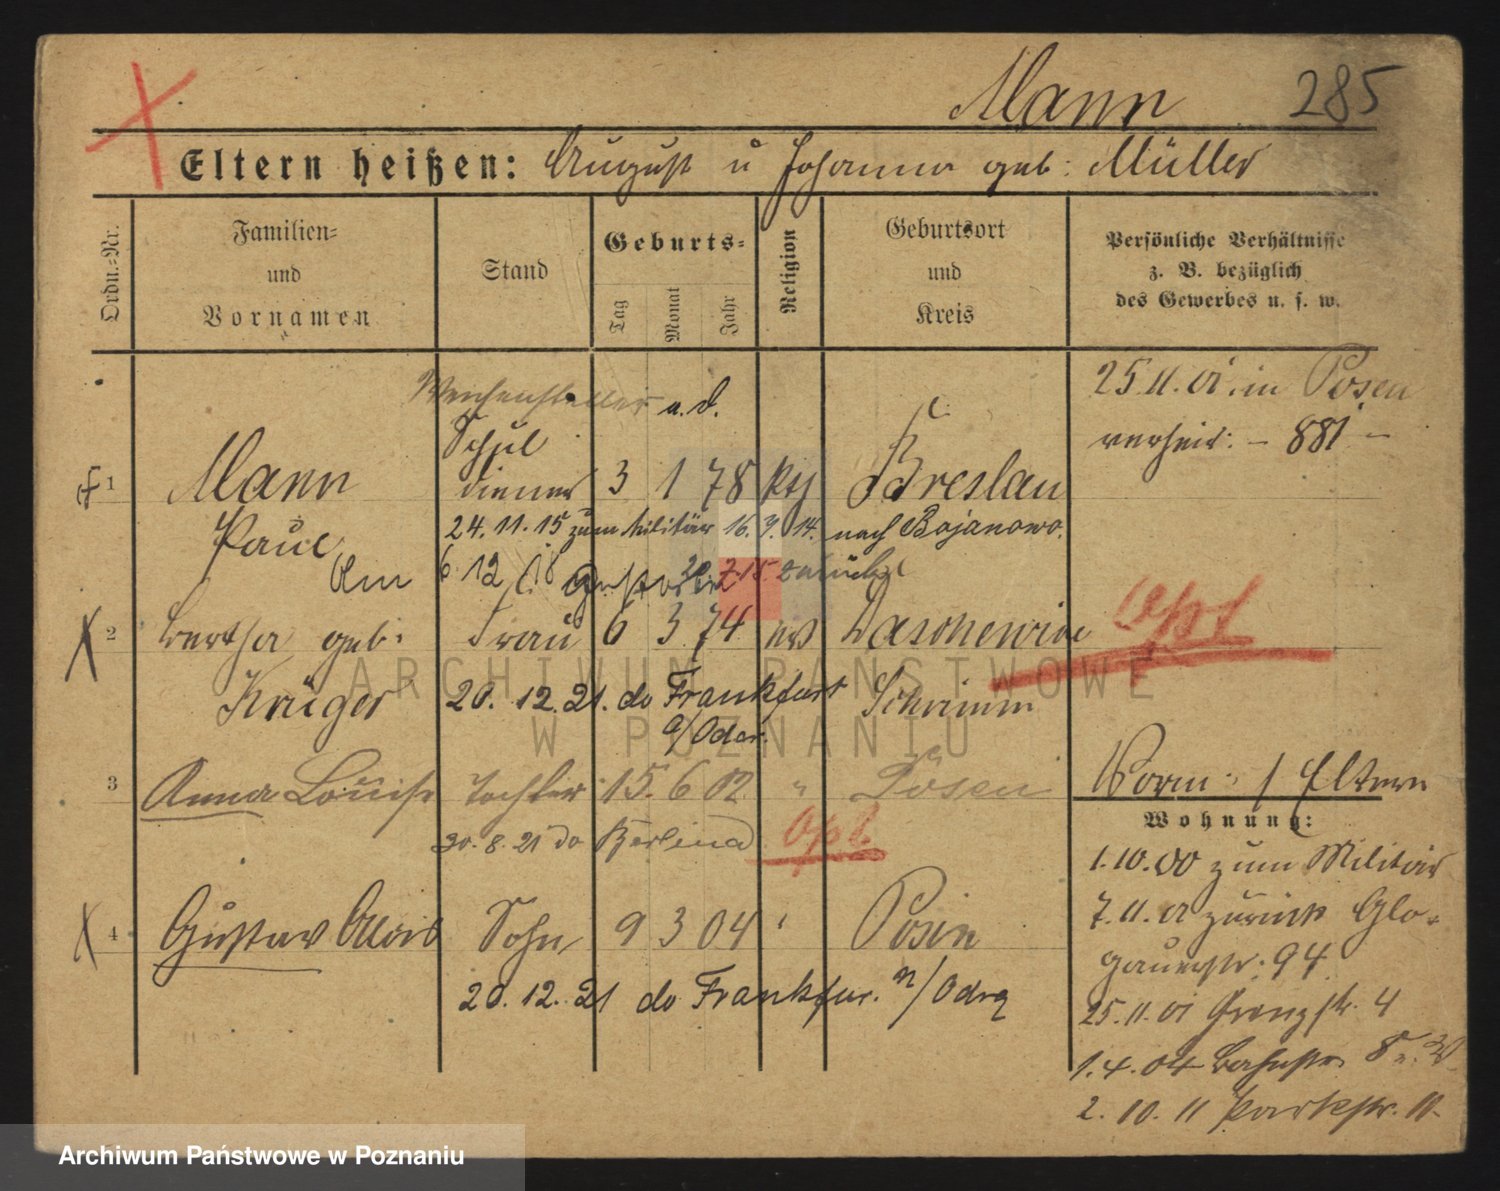 Mann 285
Eltern heißen: August u Johanna geb: Müller
Ordn.-Nr.
Familien-
und
Vornamen
Stand
Geburts-
Tag
Monat
Jahr
Religion
Geburtsort
und
Kreis
Persönliche Verhältnisse
z. B. bezüglich
des Gewerbes u. s. w.
Weichensteller a.d.
25.11.01. in Posen
verheir: – 881 –
1 Mann Schul
diener 3 1 78 Breslau
Paul
24.11.15 zum Militär 16.9.14. nach Bojanowo.
Am 6.12.18 gestorben
20.7.15. zurück
2 Bertha geb. Frau 6 3 74
Krüger
20. 12. 21. do Frankfurt
a/Oder.
Schrimm
Opt
3 Anna Louise Tochter 15. 6 02 " Posen
30. 8. 21 do Berlina
Opt.
Vorm: / Eltern
Wohnung:
4 Gustav Alois Sohn 9 3 04 " Posen
20. 12. 21 do Frankfur. n/Odrą
1.10.00 zum Militär
7.11.01 zurück Glo-
gauerstr. 94
25.11.01 Grenzstr. 4
1.4.04 Bahnstr. 8
2. 10. 11 Parkstr. 11.
ARCHIWUM PAŃSTWOWE
W POZNANIU
Archiwum Państwowe w Poznaniu